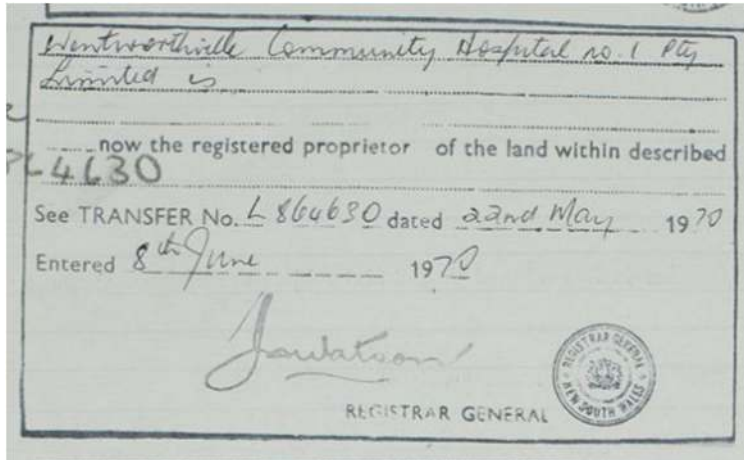 Wentworthville Community Hospital no. 1 Pty
Limited is
now the registered proprietor of the land within described
64630
See TRANSFER No. L 864630 dated 22nd May 1970
Entered 8th June 1970
REGISTRAR GENERAL
REGISTRAR GENERAL
NEW SOUTH WALES